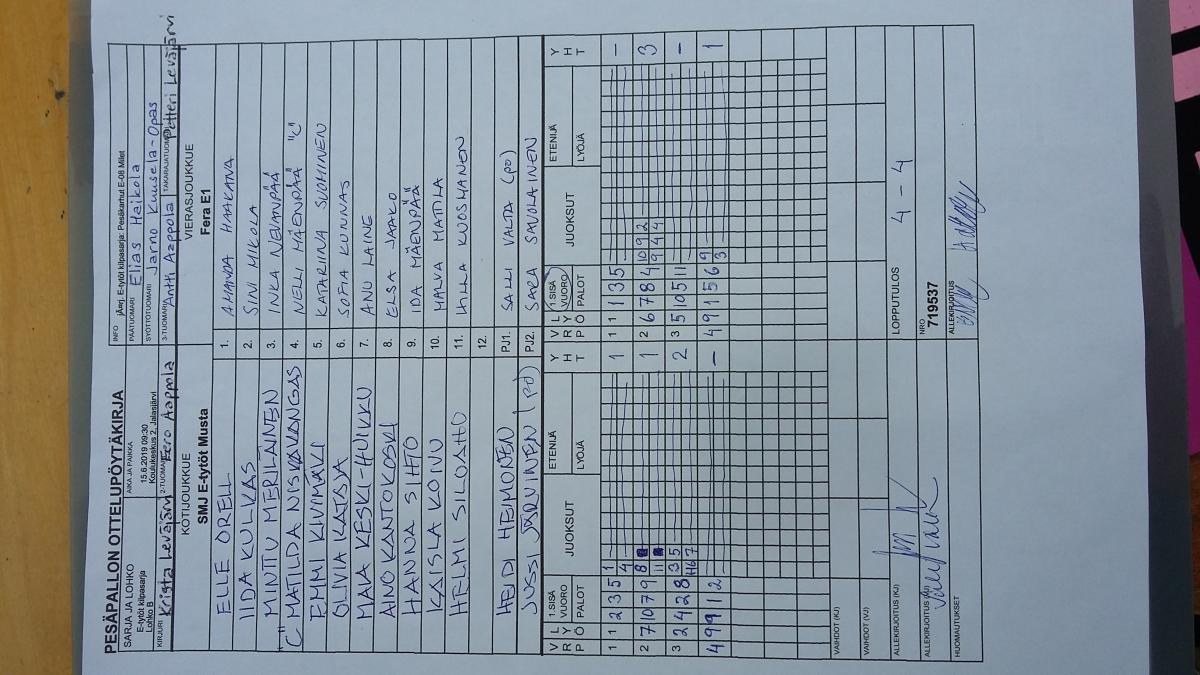 PESÄPALLON OTTELUPÖYTÄKIRJA
SARJA JA LOHKO AIKA JA PAIKKA INFO Järj. E-tytöt kilpasarja: Pesäkarhut E-08 Milet
E-tytöt kilpasarja 15.6.2019 09:30 PÄÄTUOMARI Elias Haikola
Lohko B Koulukeskus 2, Jalasjärvi SYÖTTÖTUOMARI Jarno Kuusela-Opas
KIRJURI Krista Leväjärvi 2-TUOMARI Eero Aappola 3-TUOMARI Antti Aappola TAKARAJATUOMARI Petteri Leväjärvi
KOTIJOUKKUE VIERASJOUKKUE
SMJ E-tytöt Musta Fera E1
ELLE ORELL 1. AMANDA HAAKANA
IIDA KULKAS 2. SINI MIKOLA
MINTTU MERILÄINEN 3. INKA NEVANPÄÄ
"C" MATILDA NISKAVANGAS 4. NELLI MÄENPÄÄ "C"
EMMI KIVIMÄKI 5. KATARIINA SUOMINEN
OLIVIA KATAJA 6. SOFIA KUNNAS
MAIA KESKI-HUIKKU 7. ANU LAINE
AINO KANTOKOSKI 8. ELSA JAAKO
HANNA SIHTO 9. IDA MÄENPÄÄ
KAISLA KOIVU 10. MALVA MATTILA
HELMI SILOAHO 11. HILLA KUOSMANEN
12.
HEIDI HEIMONEN PJ1. SALLI VALTA (po)
JUSSI JÄRVINEN (po) PJ2. SARA SAVOLAINEN
V R L Y Ö P 1.SISÄ VUORO PALOT JUOKSUT ETENIJÄ LYÖJÄ Y H T V R L Y Ö P 1.SISÄ VUORO PALOT JUOKSUT ETENIJÄ LYÖJÄ Y H T
1 1 2 3 5 1 4 1 1 1 1 3 5 –
2 7 10 7 9 8 11 1 2 6 7 8 4 10 9 2 9 4 4 3
3 2 4 2 8 3 5 7 2 3 5 10 5 11 –
4 9 9 1 2 – 4 9 1 5 6 9 3 1
VAIHDOT (KJ)
VAIHDOT (VJ)
ALLEKIRJOITUS (KJ) LOPPUTULOS 4 – 4
NRO 719537
ALLEKIRJOITUS ALLEKIRJOITUS
HUOMAUTUKSET